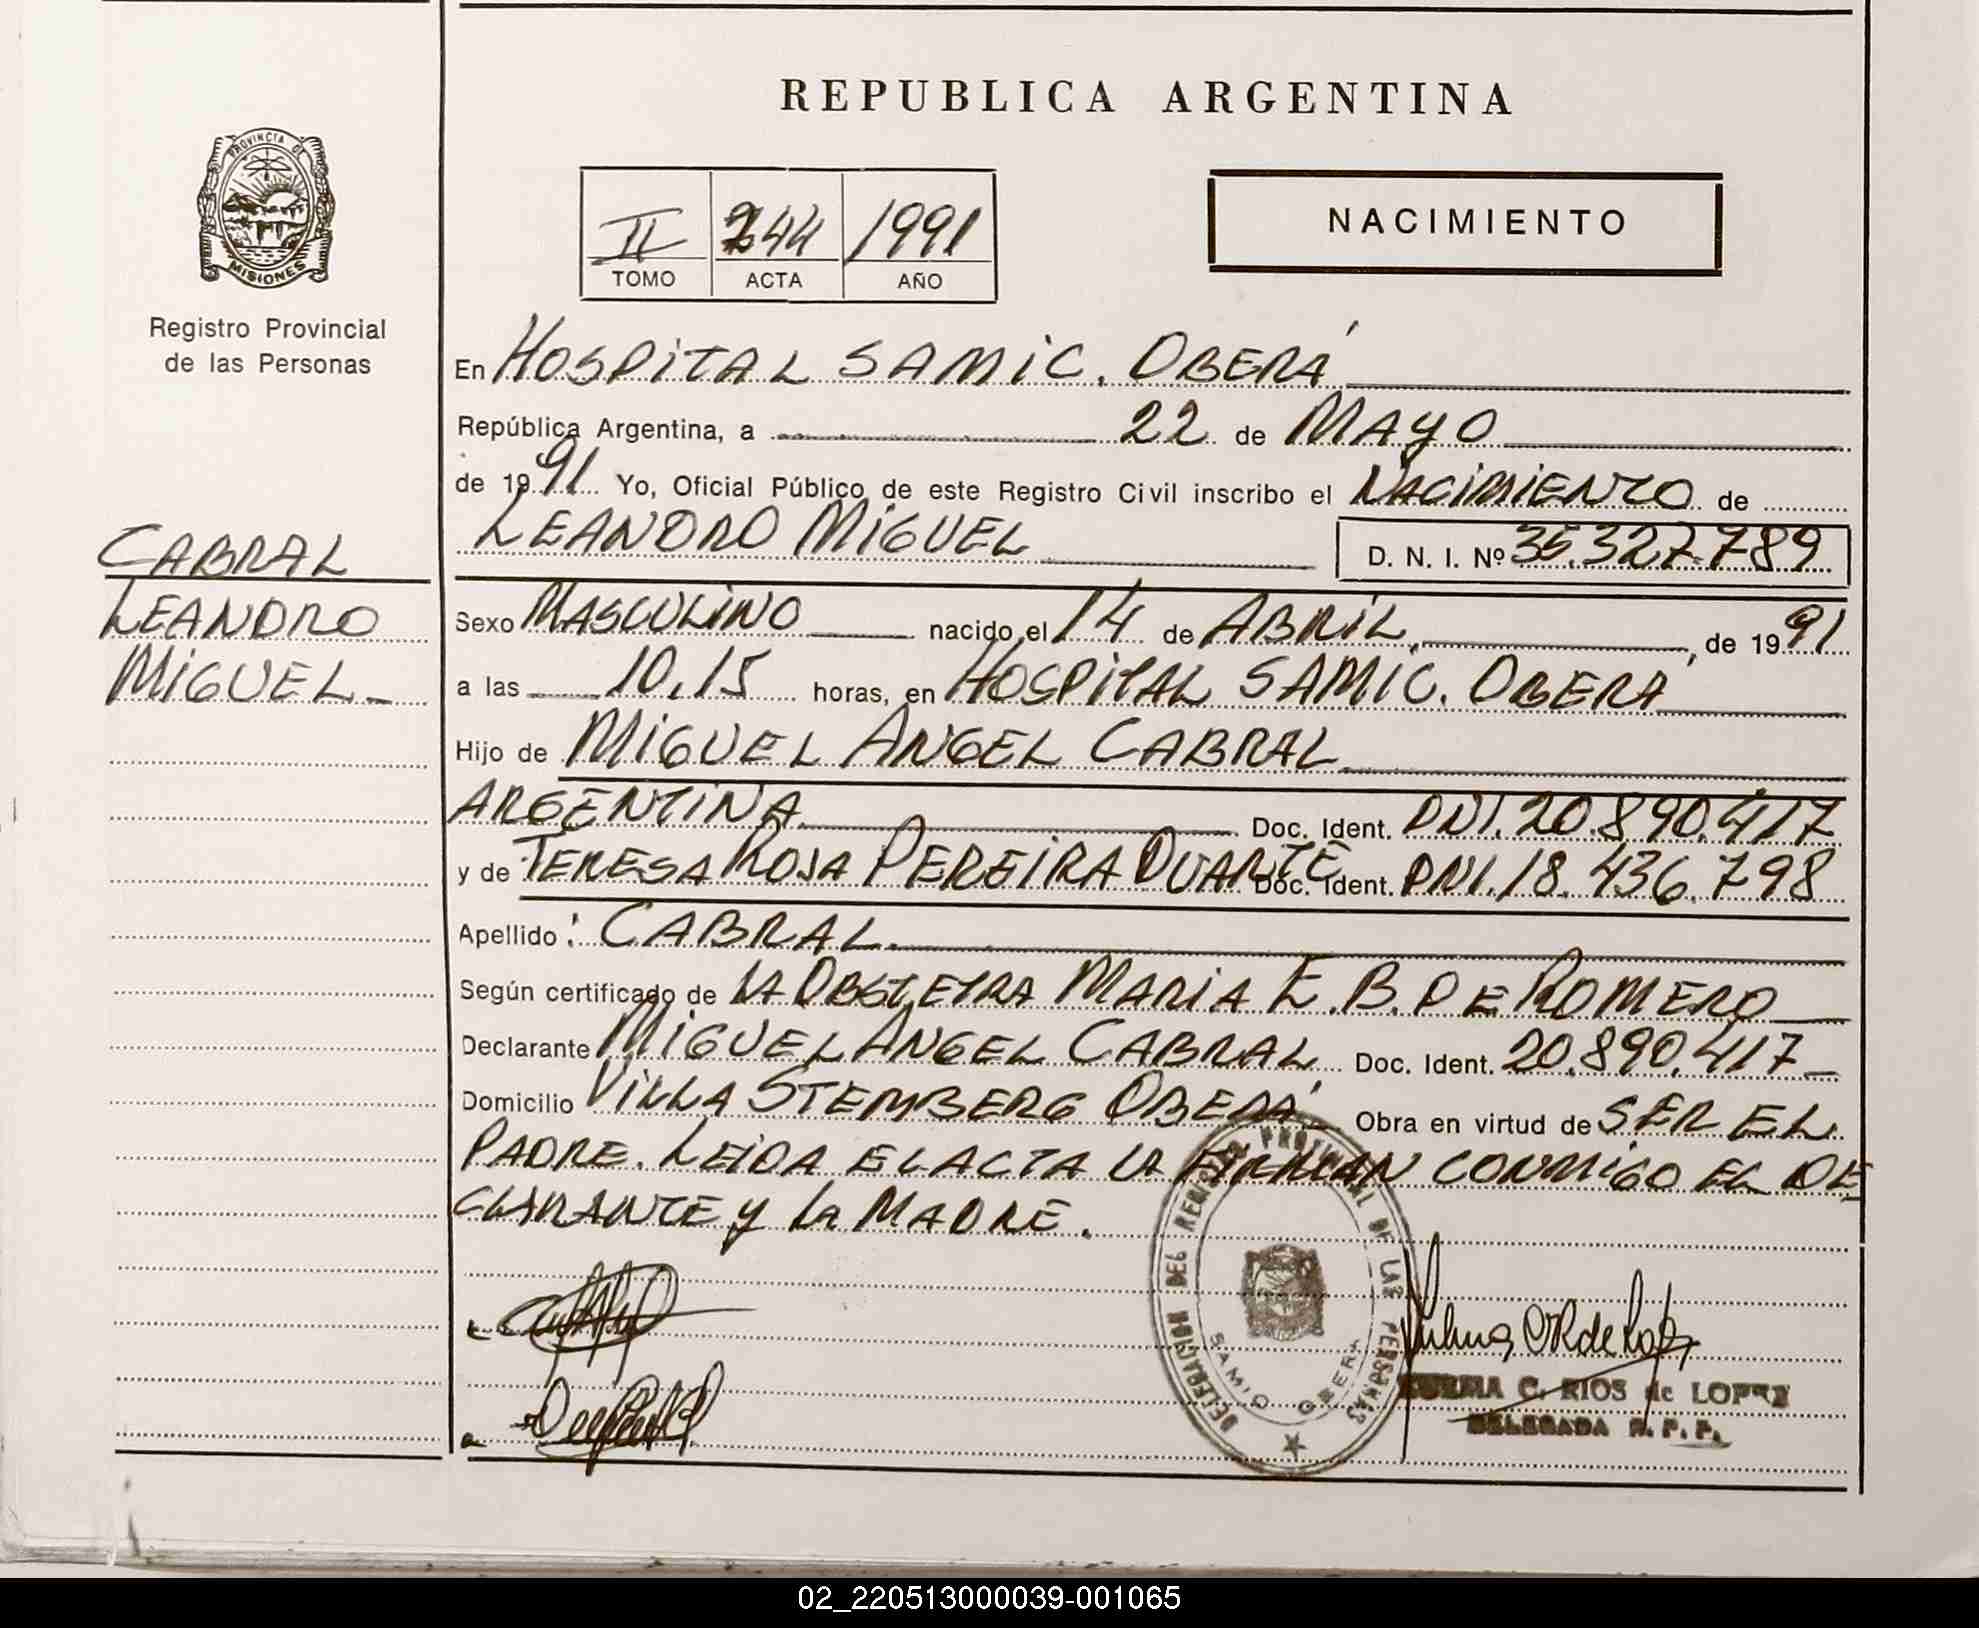 REPUBLICA ARGENTINA
PROVINCIA DE
MISIONES
Registro Provincial
de las Personas
II 244 1991
TOMO ACTA AÑO
NACIMIENTO
En HOSPITAL SAMIC. OBERÁ
República Argentina, a 22 de MAYO
de 1991 Yo, Oficial Público de este Registro Civil inscribo el NACIMIENTO de
LEANDRO MIGUEL D. N. I. Nº 35.327.789
CABRAL
LEANDRO
MIGUEL_
Sexo MASCULINO nacido el 14 de ABRIL, de 1991
a las 10,15 horas, en HOSPITAL SAMIC. OBERÁ
Hijo de MIGUEL ANGEL CABRAL
ARGENTINA Doc. Ident. DNI. 20.890.417
y de TERESA ROSA PEREIRA DUARTE Doc. Ident. DNI. 18.436.798
Apellido: CABRAL
Según certificado de LA OBSTETRA MARIA E. B. DE ROMERO
Declarante MIGUEL ANGEL CABRAL Doc. Ident. 20.890.417_
Domicilio VILLA STEMBERG OBERÁ Obra en virtud de SER EL
PADRE. LEIDA EL ACTA LA FIRMAN CONMIGO EL DE
CLARANTE y LA MADRE.
DELEGACION DEL REGISTRO PROVINCIAL DE LAS PERSONAS
SAMIC OBERA
C. RIOS de LOPEZ
DELEGADA R. P. P.
02_220513000039-001065